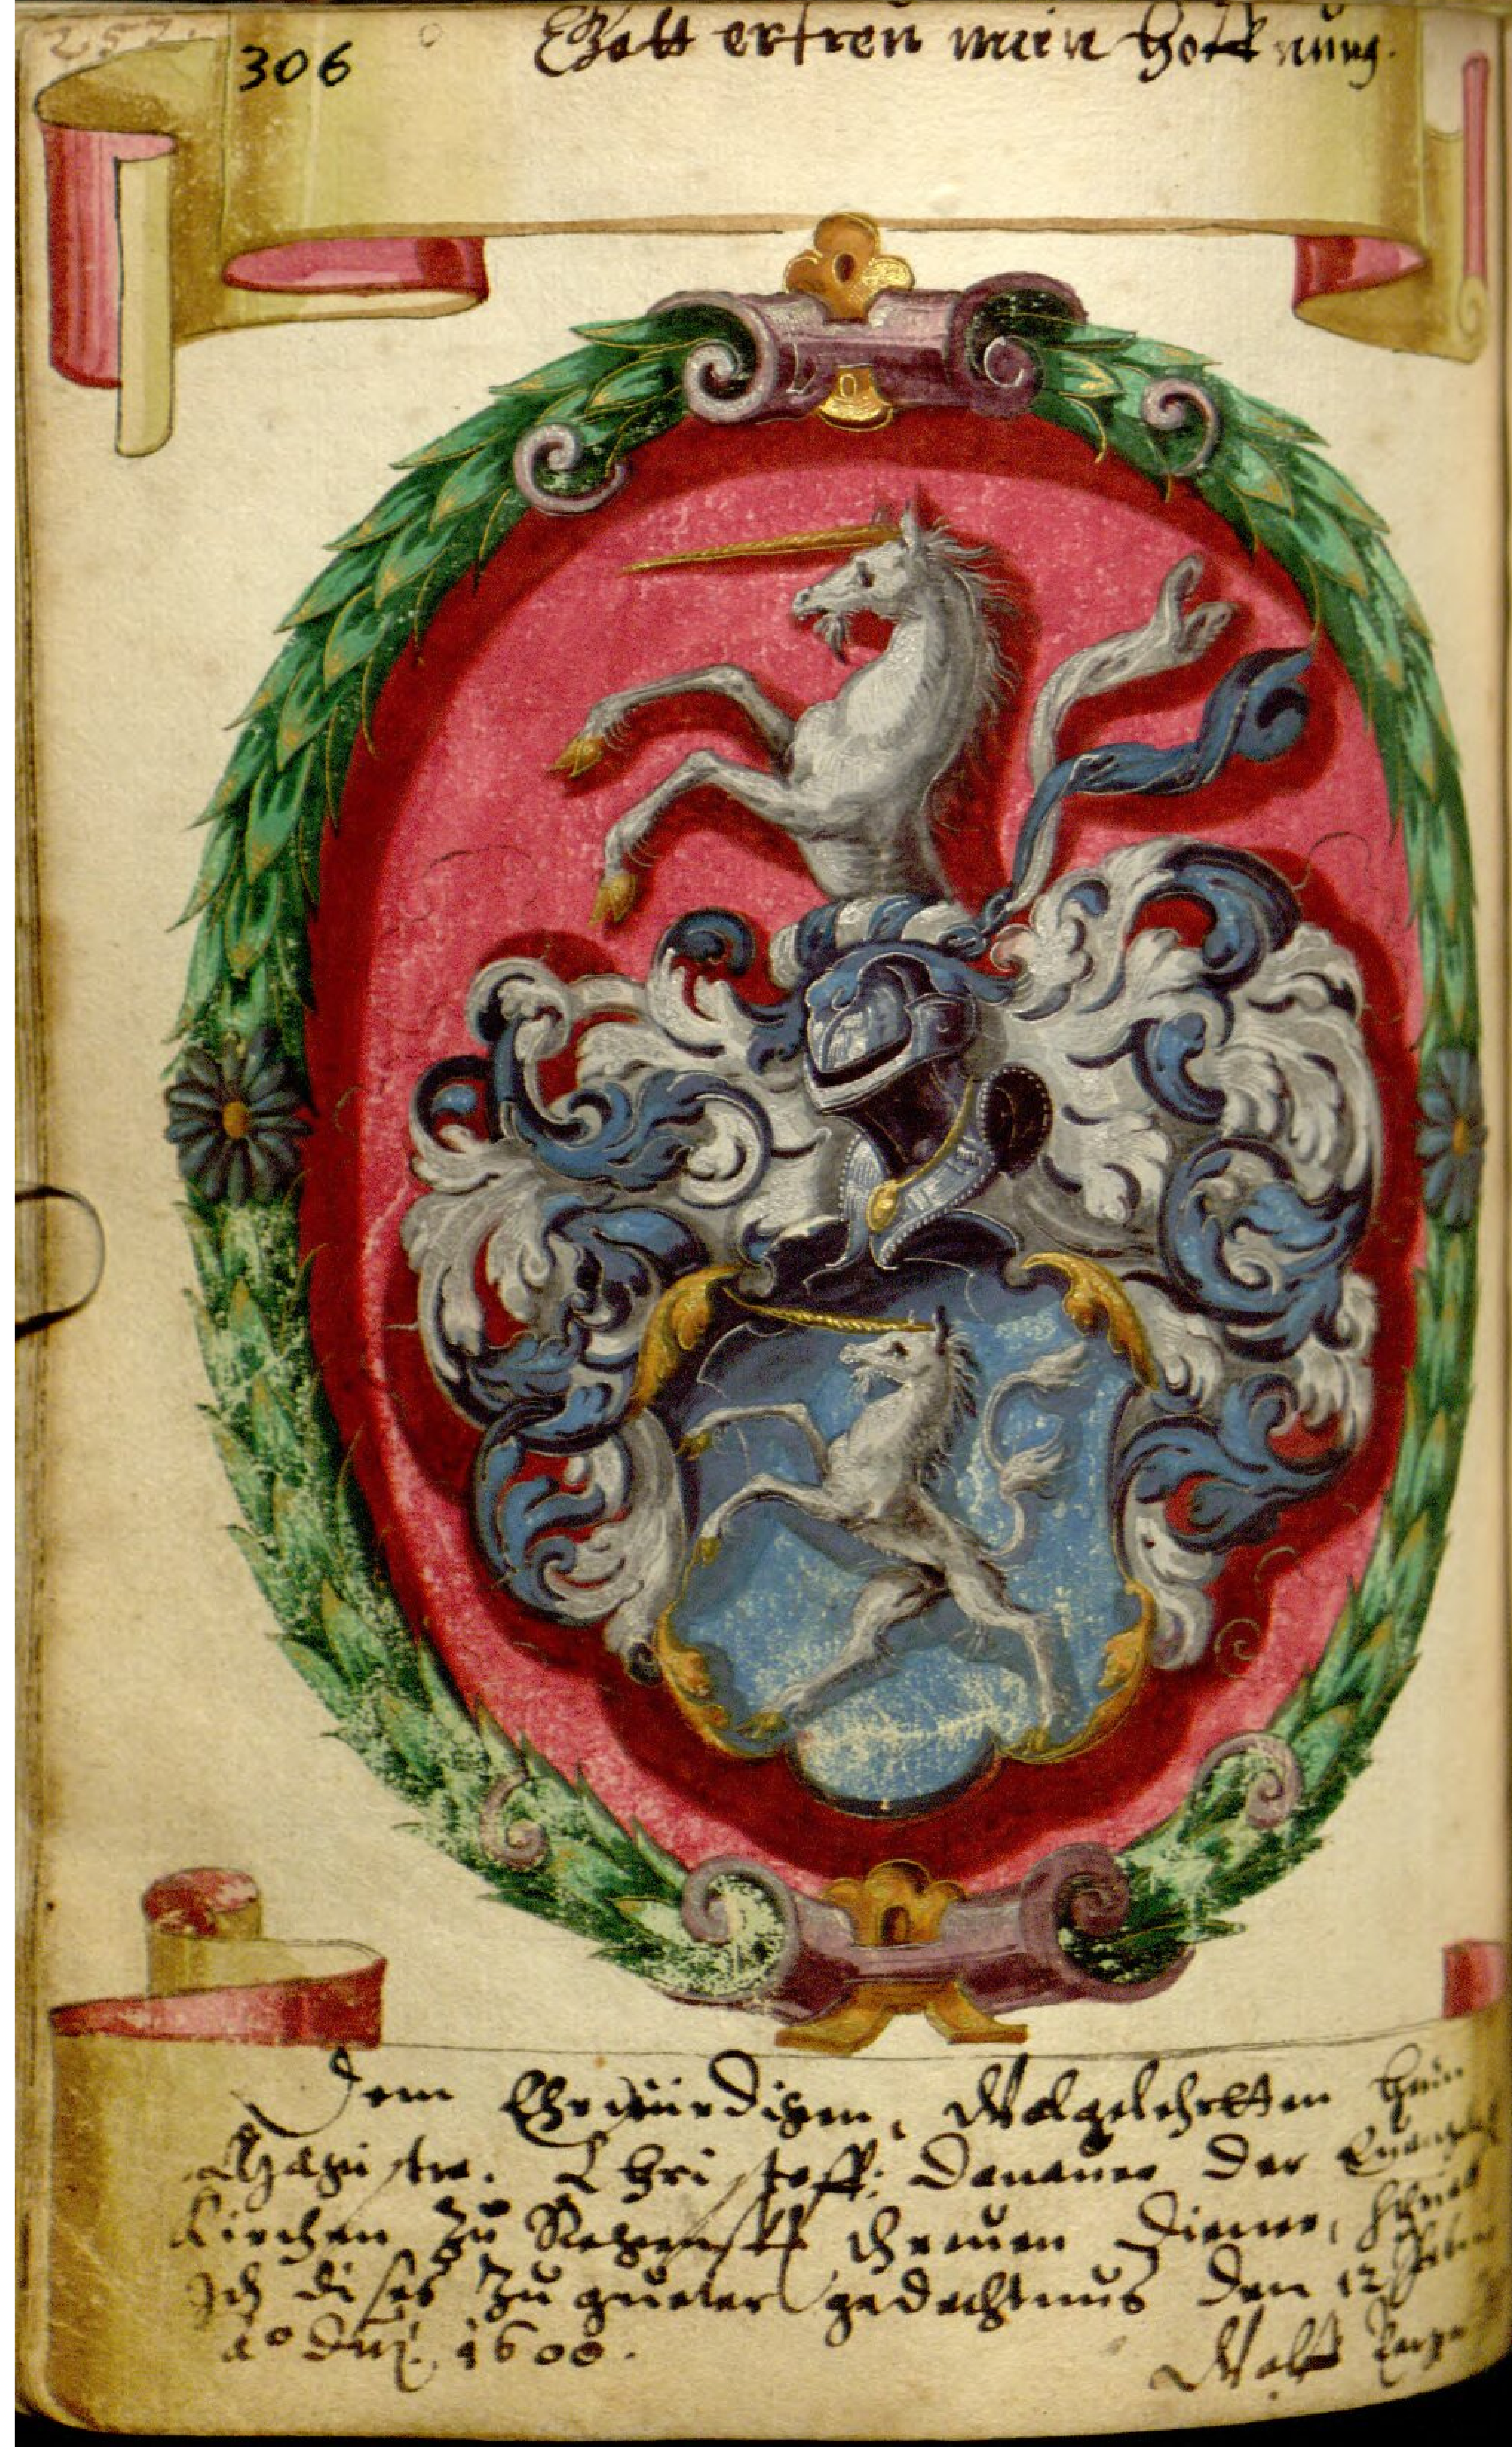 257.
306
Gott erfreu mein Hoffnung.
Dem Ehrwürdigen, Wolgelehrtten Herrn
Magistro. Christoff: Donauer der
Kirchen zu Regenspk threuen Diener, schrieb
Ich dises zu gueter gedechtnus den 12
Ao Dni. 1600.
Wolf